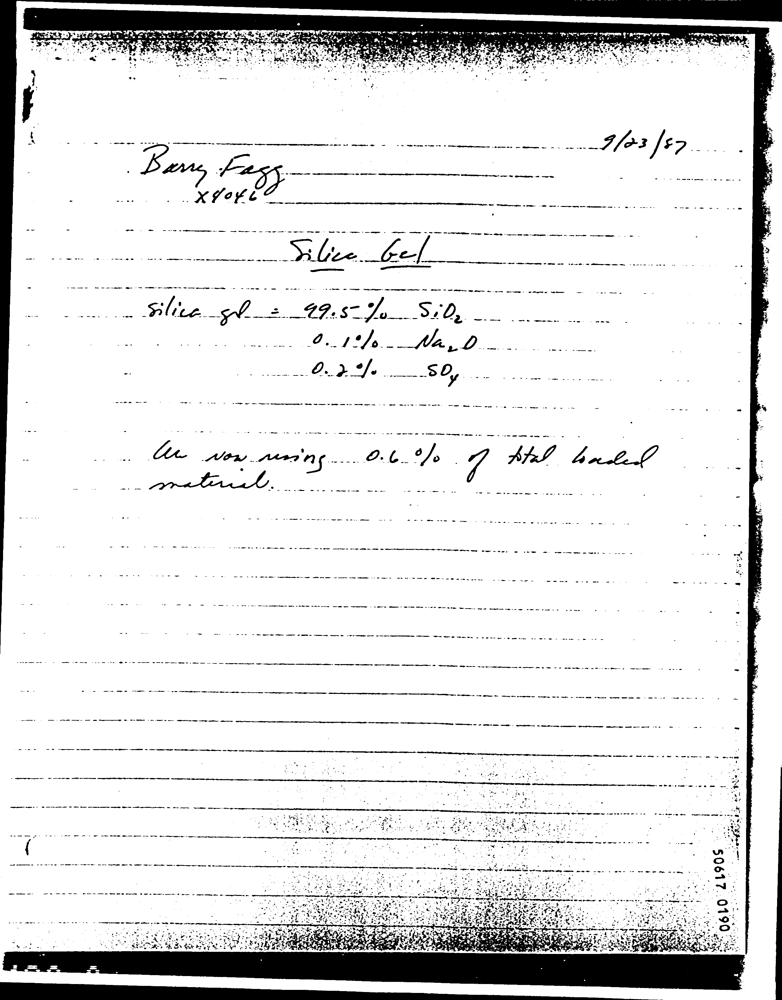 9/23/87
Barry Fagg
X4046
Silica Gel
silica gel = 99.5% SiO₂
0.1% Na₂O
0.2% SO₄
are now using 0.6% of total loaded
material.
50617 0190